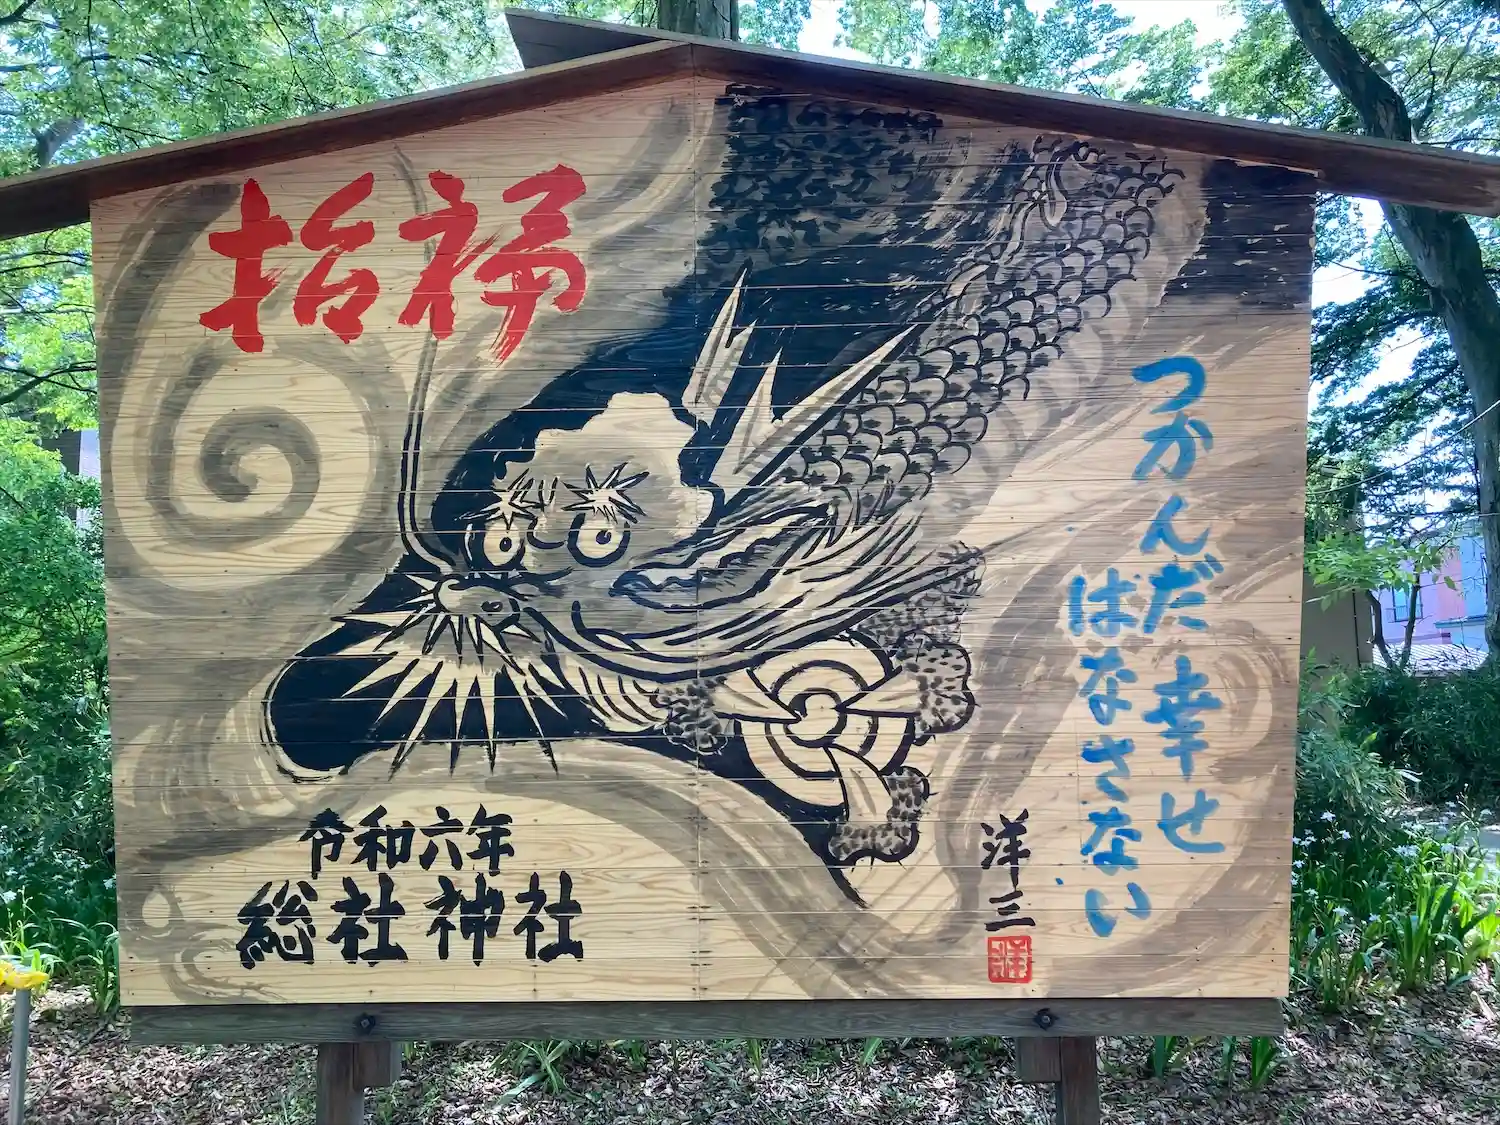 招福
つかんだ幸せ
ばなさない
洋三
令和六年
総社神社